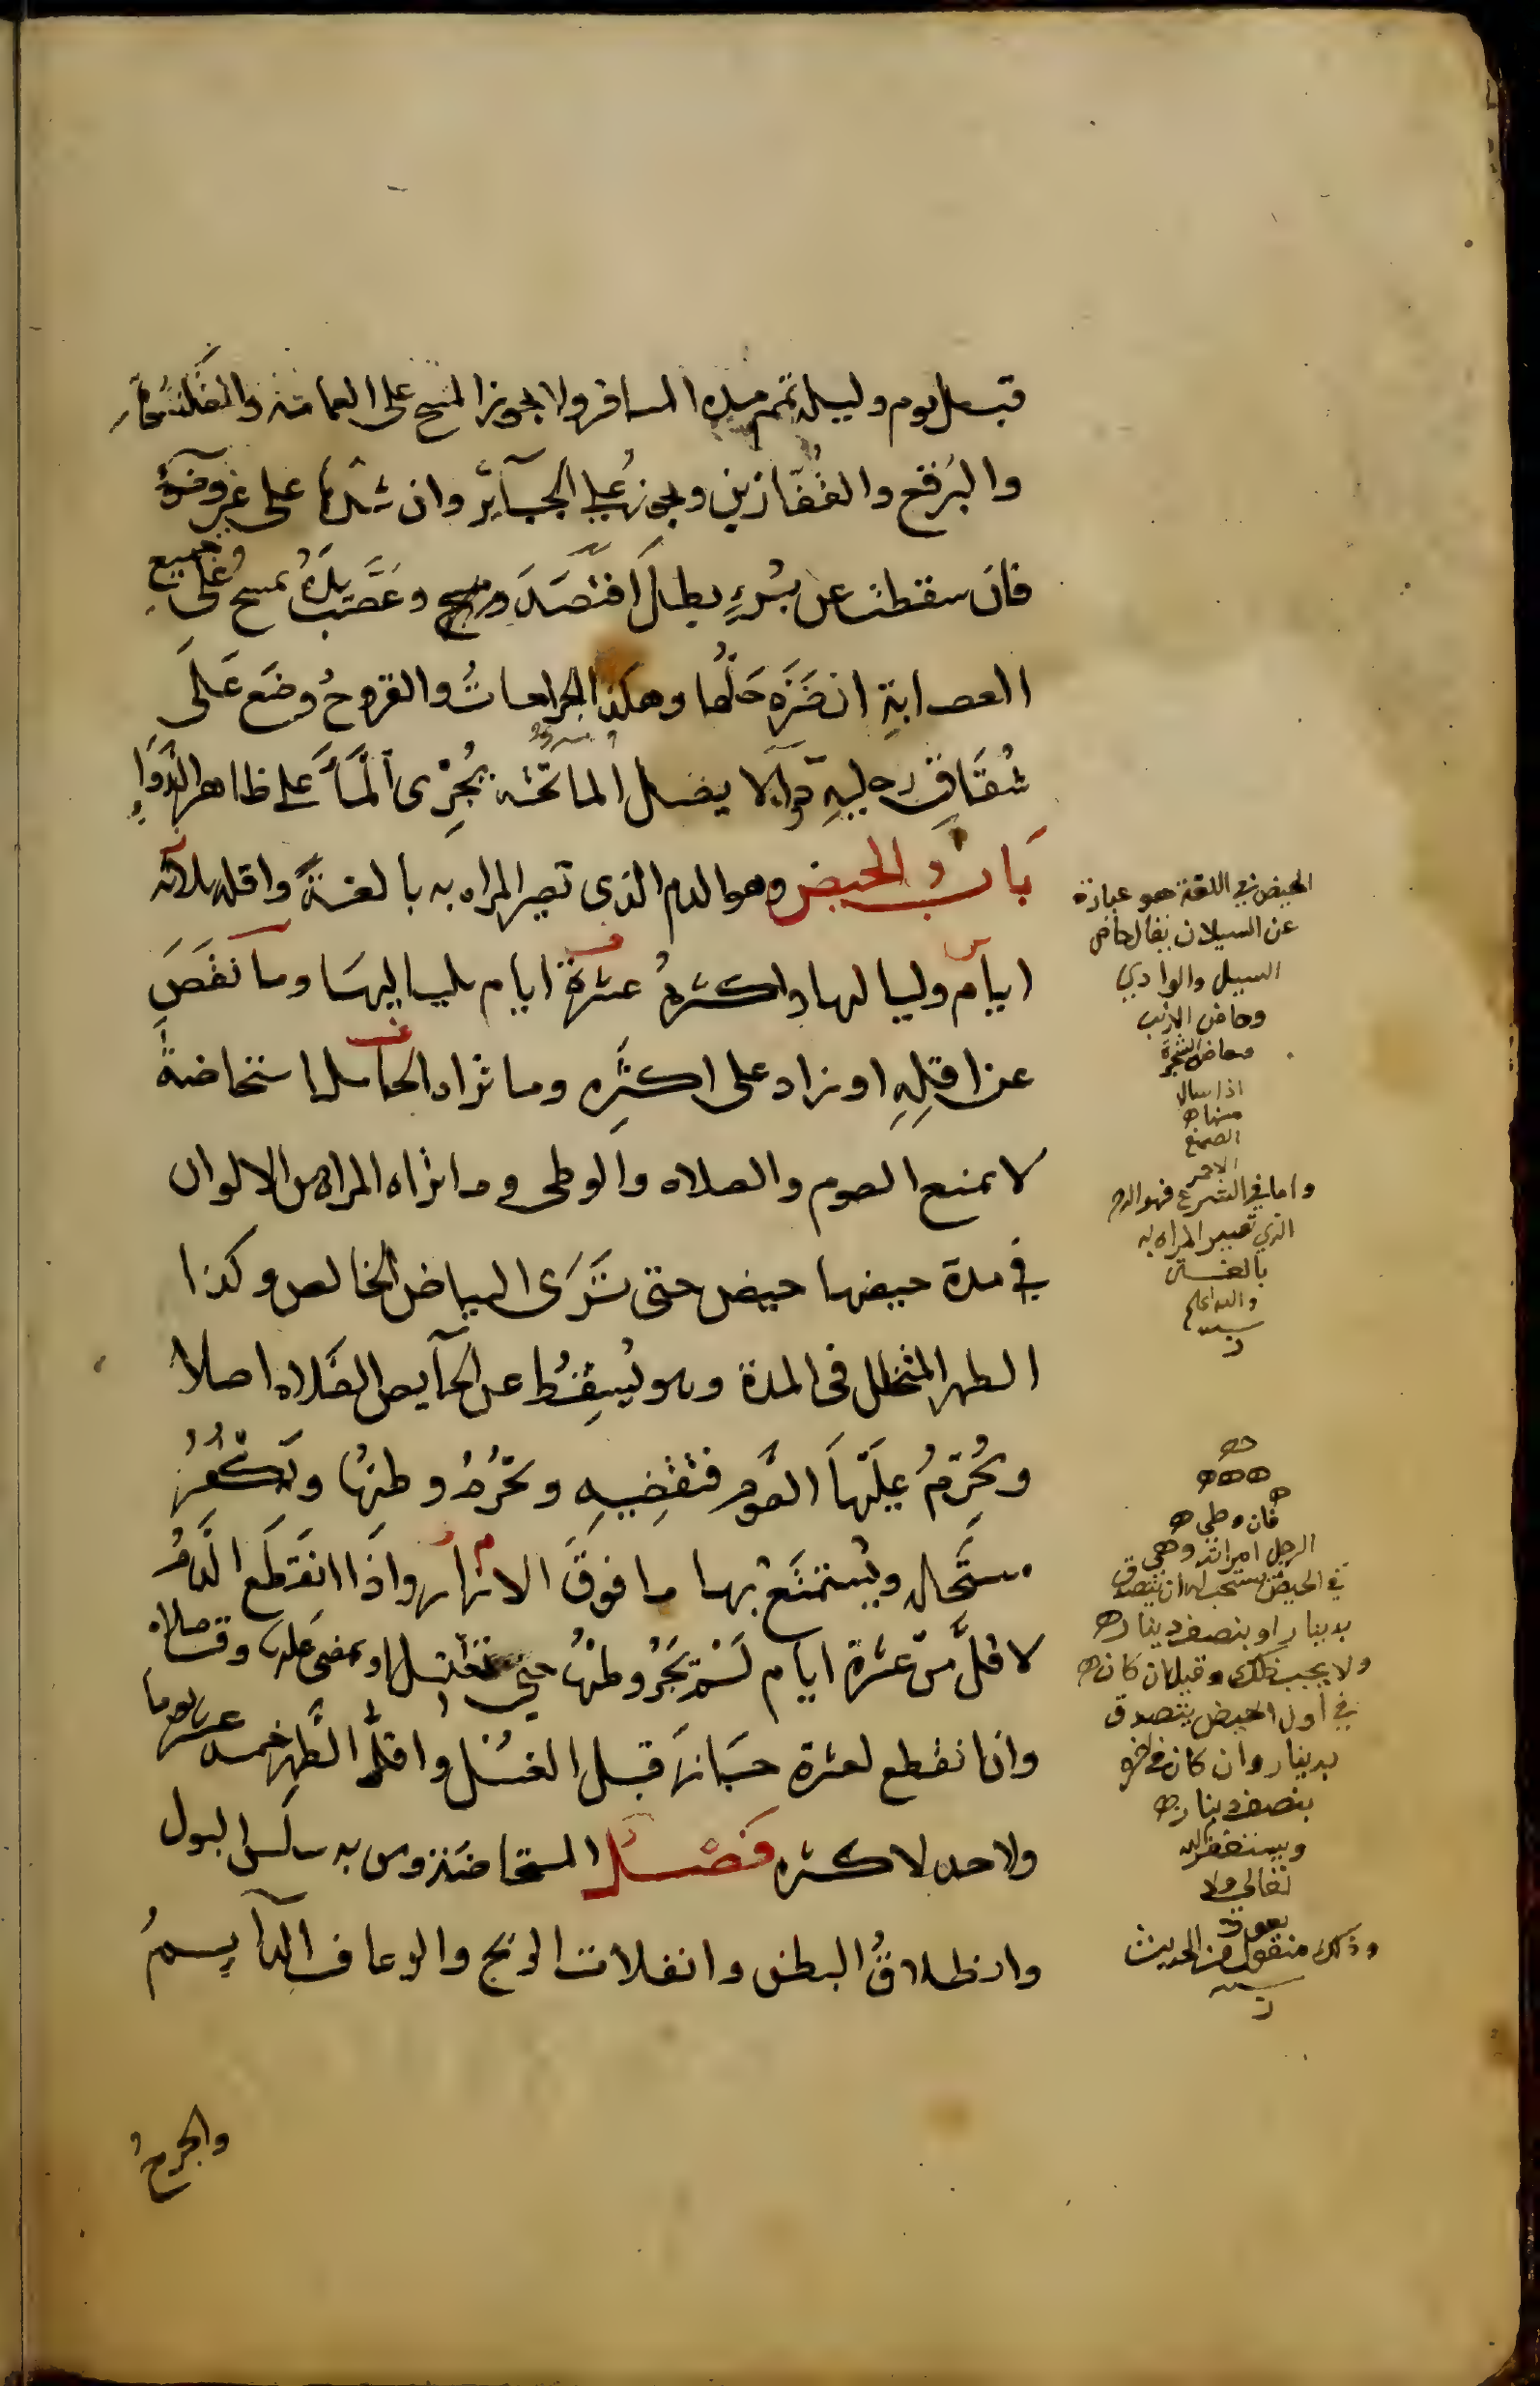 قبل يوم وليلة تمم مدة المسافر ولا يجوز المسح على العمامة والقلنسوة
والبُرقع والقُفّازين ويجوزُ على الجبآئر وان شدّها على غير وضوءٍ
فان سقطت عن بُرْءٍ بطل افتَصَدَ ومسح وعَصَّبَ يدَهُ يمسحُ على جميع
العصابةِ ان ضَرَّه حَلُّها وهكذا الجراحاتُ والقروحُ وضَع عَلَى
شُقَاقِ رجليهِ دوآءً لا يصل الما تحته يُجْرِى المآءَ على ظاهر الدَّوَاءِ
بَابُ الحيض وهو الدم الذى تصير المراه به بالغةً واقله ثلاثه
ايام وليالها واكثرهُ عشرة ايام بلياليها وما نقَصَ
عن اقلِهِ او زاد على اكثَرِه وما تراه الحامل استحاضةً
لا يمنع الصوم والصلاه والوطى وما تراه المراه من الالوان
في مدة حيضها حيض حتى تَرَى البياض الخالص وكذا
الطهر المتخلل فى المدة وهو يُسِقطُ عن الحآيض الصَّلاه اصلا
ويُحَرِّمُ عليها الصَّوم فتقضيهِ ويَحْرُمُ وطئها ويَكْفُرُ
مستحله ويُستمتَعُ بها ما فوقَ الازار واذا انقَطَع الدَّمُ
لاقلَّ من عشرة ايام لَمْ يَجُز وطئُها حتى تغتسل او يمضى عليها وقت صلاه
وان انقطع لعشرة جَازَ قبل الغسْل واقلُّ الطُّهر خمسه عشر يوما
ولا حد لاكثره فَصْلٌ المستحاضَة ومن به سلس البول
وانطلاقُ البطن وانفلات الريح والرعاف الدآيمُ
والجرحُ
الحيض في اللغة هو عبارة
عن السيلان يقال حاض
السيل والوادي
وحاض الارنب
وحاض الشجرة
اذا سال
منها
الصمغ
الاحمر
واما في الشرع فهو الدم
الذي تصير المراه به
بالغة
والله اعلم
فان وطي
الرجل امراته وهي
في الحيض يستحب له ان يتصدق
بدينار او بنصف دينار
ولا يجب ذلك وقيل ان كان
في اول الحيض يتصدق
بدينار وان كان في اخره
بنصف دينار
ويستغفر الله
تعالى ولا
يعود
وذلك منقول من الحديث